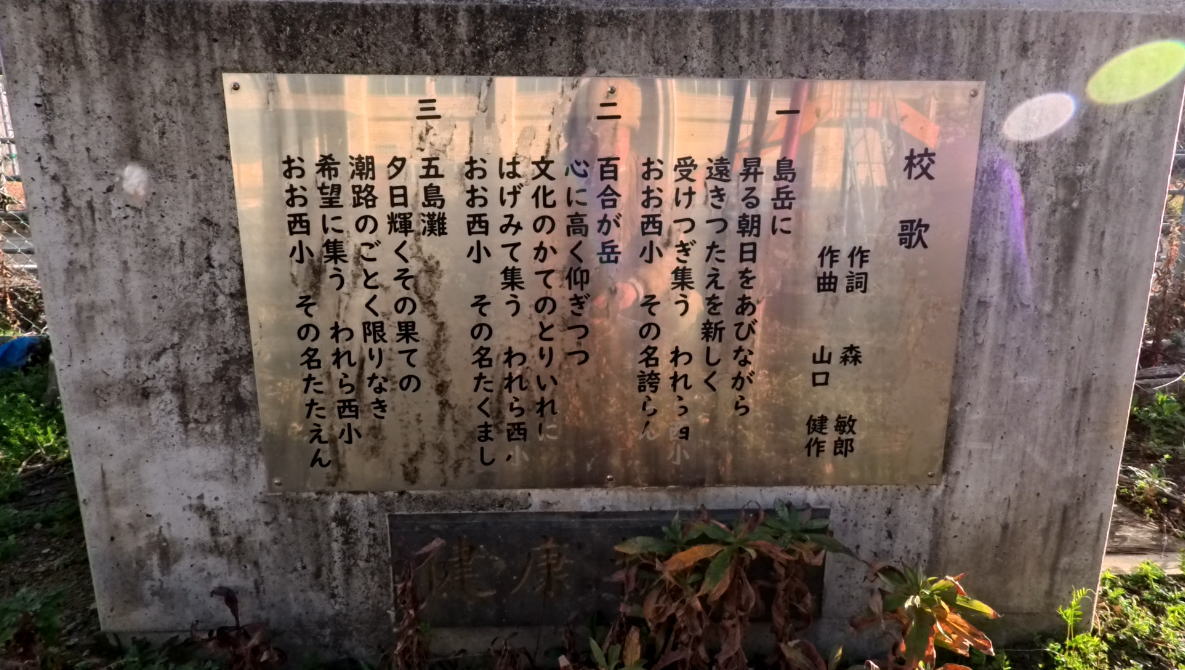 校歌
作詞 森 敏郎
作曲 山口 健作
一 島岳に
昇る朝日をあびながら
遠きつたえを新しく
受けつぎ集う われら西小
おお西小 その名誇らん
二 百合が岳
心に高く仰ぎつつ
文化のかてのとりいれに
はげみて集う われら西小
おお西小 その名たくまし
三 五島灘
夕日輝くその果ての
潮路のごとく限りなき
希望に集う われら西小
おお西小 その名たたえん
健康